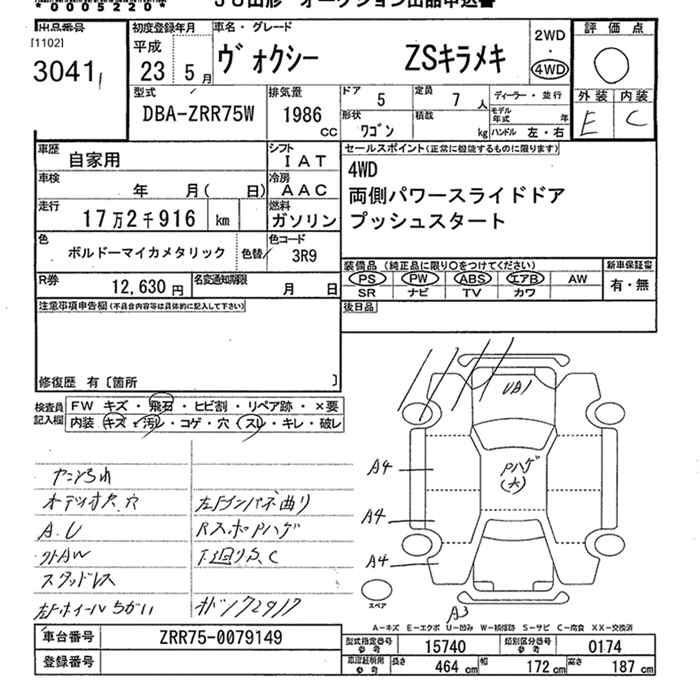 *0005220*
JU山形 オークション出品申込書
出品番号
[1102]
3041
初度登録年月
平成
23 5月
車名・グレード
ヴォクシー ZSキラメキ
2WD
・
4WD
評価点
外装 内装
E C
型式
DBA-ZRR75W
排気量
1986
cc
ドア 5
定員 7人
形状 ワゴン
積載 kg
ディーラー・並行
モデル年式 年
ハンドル 左・右
車歴 自家用
シフト IAT
車検 年 月( 日)
冷房 AAC
走行 17万2千916 km
燃料 ガソリン
色 ボルドーマイカメタリック
色替
色コード 3R9
R券 12,630円
名変通知期限 月 日
セールスポイント(正常に機能するものに限ります)
4WD
両側パワースライドドア
プッシュスタート
装備品(純正品に限り○をつけてください)
PS PW ABS エアB AW
SR ナビ TV カワ
新車保証書
有・無
後日品
注意事項申告欄(不具合内容等は具体的に記入して下さい)
修復歴 有〔箇所 〕
検査員記入欄
FW キズ・飛石・ヒビ割・リペア跡・×要
内装 キズ・汚レ・コゲ・穴・スレ・キレ・破レ
オデッオ欠.穴
A.U
外AW
スタッドレス
左Fホイールちがい
左Fインパネ曲り
RスポPハゲ
下廻りS.C
UA1
Pハゲ
(大)
A4
A4
A4
A3
スペア
A-キズ E-エクボ U-凹み W-補修跡 S-サビ C-腐食 XX-交換済
車台番号 ZRR75-0079149
登録番号
型式指定番号 参考 15740
類別区分番号 参考 0174
車庫証明用 参考 長さ 464cm 幅 172cm 高さ 187cm